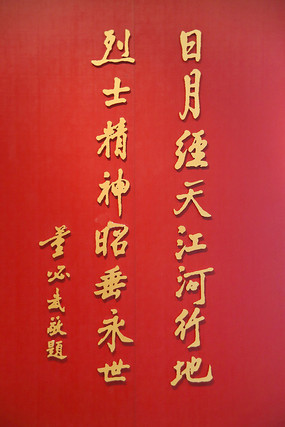 日月經天江河行地
烈士精神昭垂永世
董必武敬題